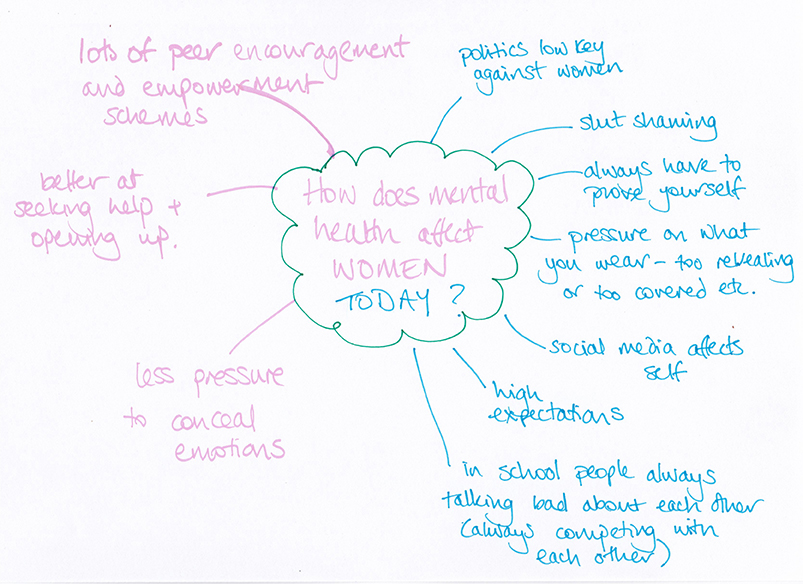 lots of peer encouragement
and empowerment
schemes
better at
seeking help +
opening up.
less pressure
to conceal
emotions
How does mental
health affect
WOMEN
TODAY ?
politics low key
against women
slut shaming
always have to
prove yourself
pressure on what
you wear - too revealing
or too covered etc.
social media affects
self
high
expectations
in school people always
talking bad about each other
(always competing with
each other)